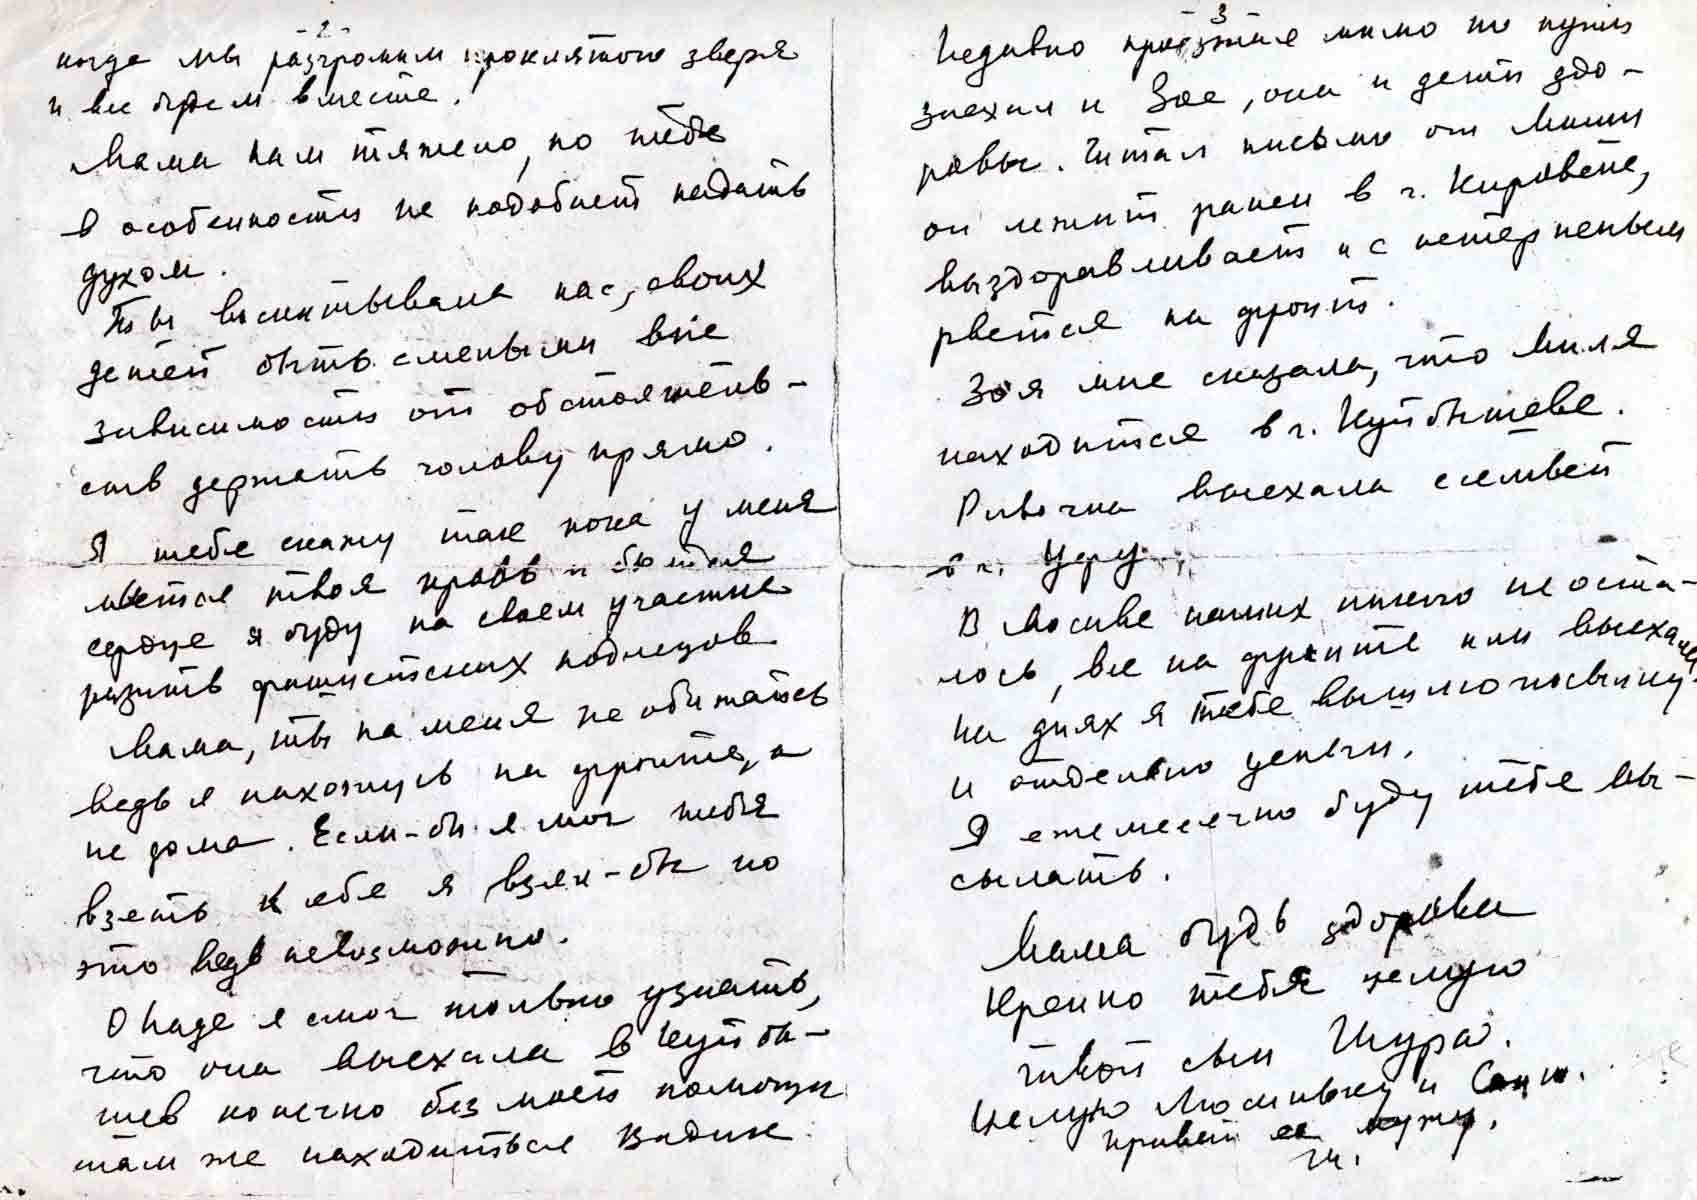 -2-
когда мы разгромим проклятого зверя
и все будем вместе.
Мама нам тяжело, но тебе
в особенности не подобает падать
духом.
Ты воспитывала нас, своих
детей быть смелыми вне
зависимости от обстоятель-
ств держать голову прямо.
Я тебе скажу так пока у меня
льется твоя кровь и бьется
сердце я буду на своем участке
разить фашистских подлецов
Мама, ты на меня не обижайся
ведь я нахожусь на фронте, а
не дома. Если-бы я мог тебя
взеть к себе я взял-бы но
это ведь невозможно.
О Наде я смог только узнать,
что она выехала в Куйбы-
шев конечно без моей помощи
там же находиться Вадик
3
Недавно проезжая мимо по пути
заехал к Зое, она и дети здо-
ровы. Читал письмо от Миши
он лежит ранен в г. Кировске,
выздоравливает и с нетерпеньем
рвется на фронт.
Зоя мне сказала, что Миля
находится в г. Куйбышеве.
Ривочка выехала с семьей
в г. Уфу.
В Москве наших никого не оста-
лось, все на фронте или выехали
На днях я тебе вышлю посылку
и отдельно деньги.
Я ежемесечно буду тебе вы-
сылать.
Мама будь здорова
Крепко тебя целую
твой сын Шура.
Целую Люсиньку и
привет ее мужу.